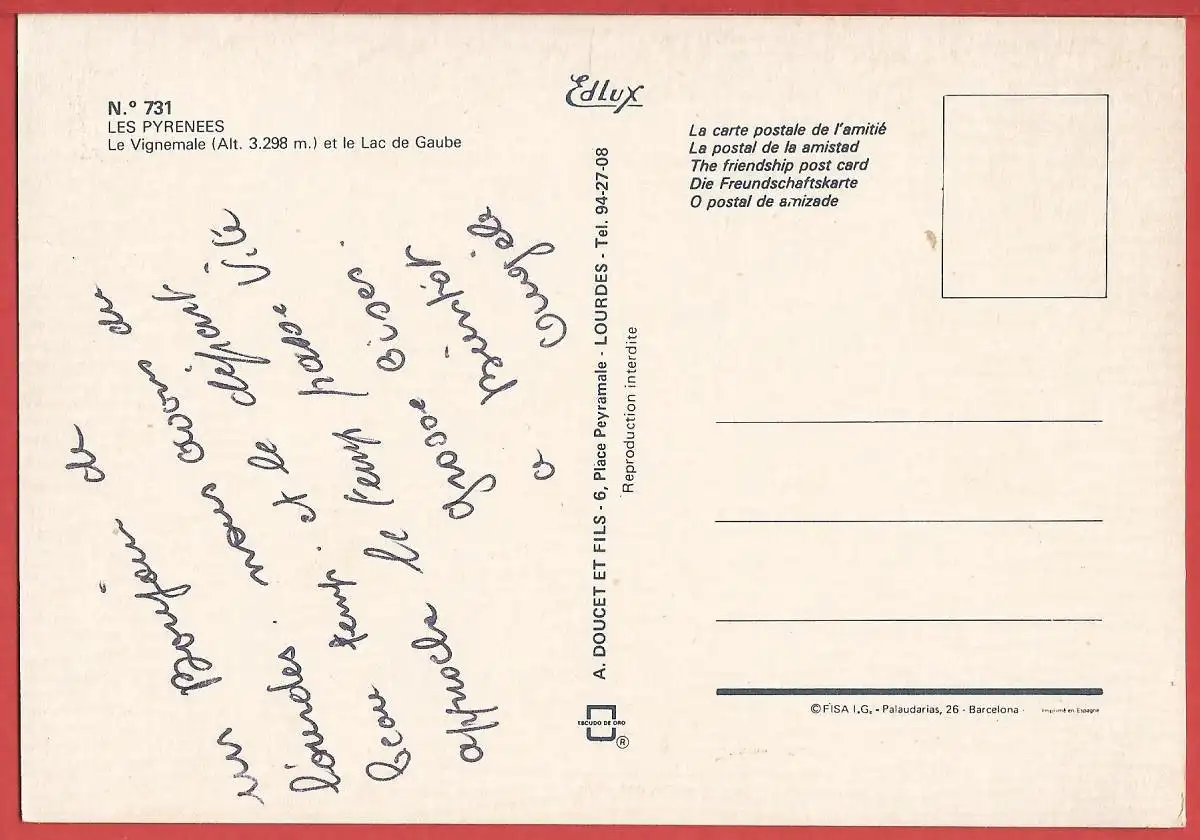 N.º 731
LES PYRENEES
Le Vignemale (Alt. 3.298 m.) et le Lac de Gaube
un Bonjour de
lourdes. nous avons du
beau temp. et le départ
approche le temp passe Vite
Grosse Bises.
a Bientôt
Angèle
Edlux
A. DOUCET ET FILS - 6, Place Peyramale - LOURDES - Tel. 94-27-08
Reproduction interdite
ESCUDO DE ORO
®
La carte postale de l'amitié
La postal de la amistad
The friendship post card
Die Freundschaftskarte
O postal de amizade
© FISA I.G. - Palaudarias, 26 - Barcelona
Imprimé en Espagne